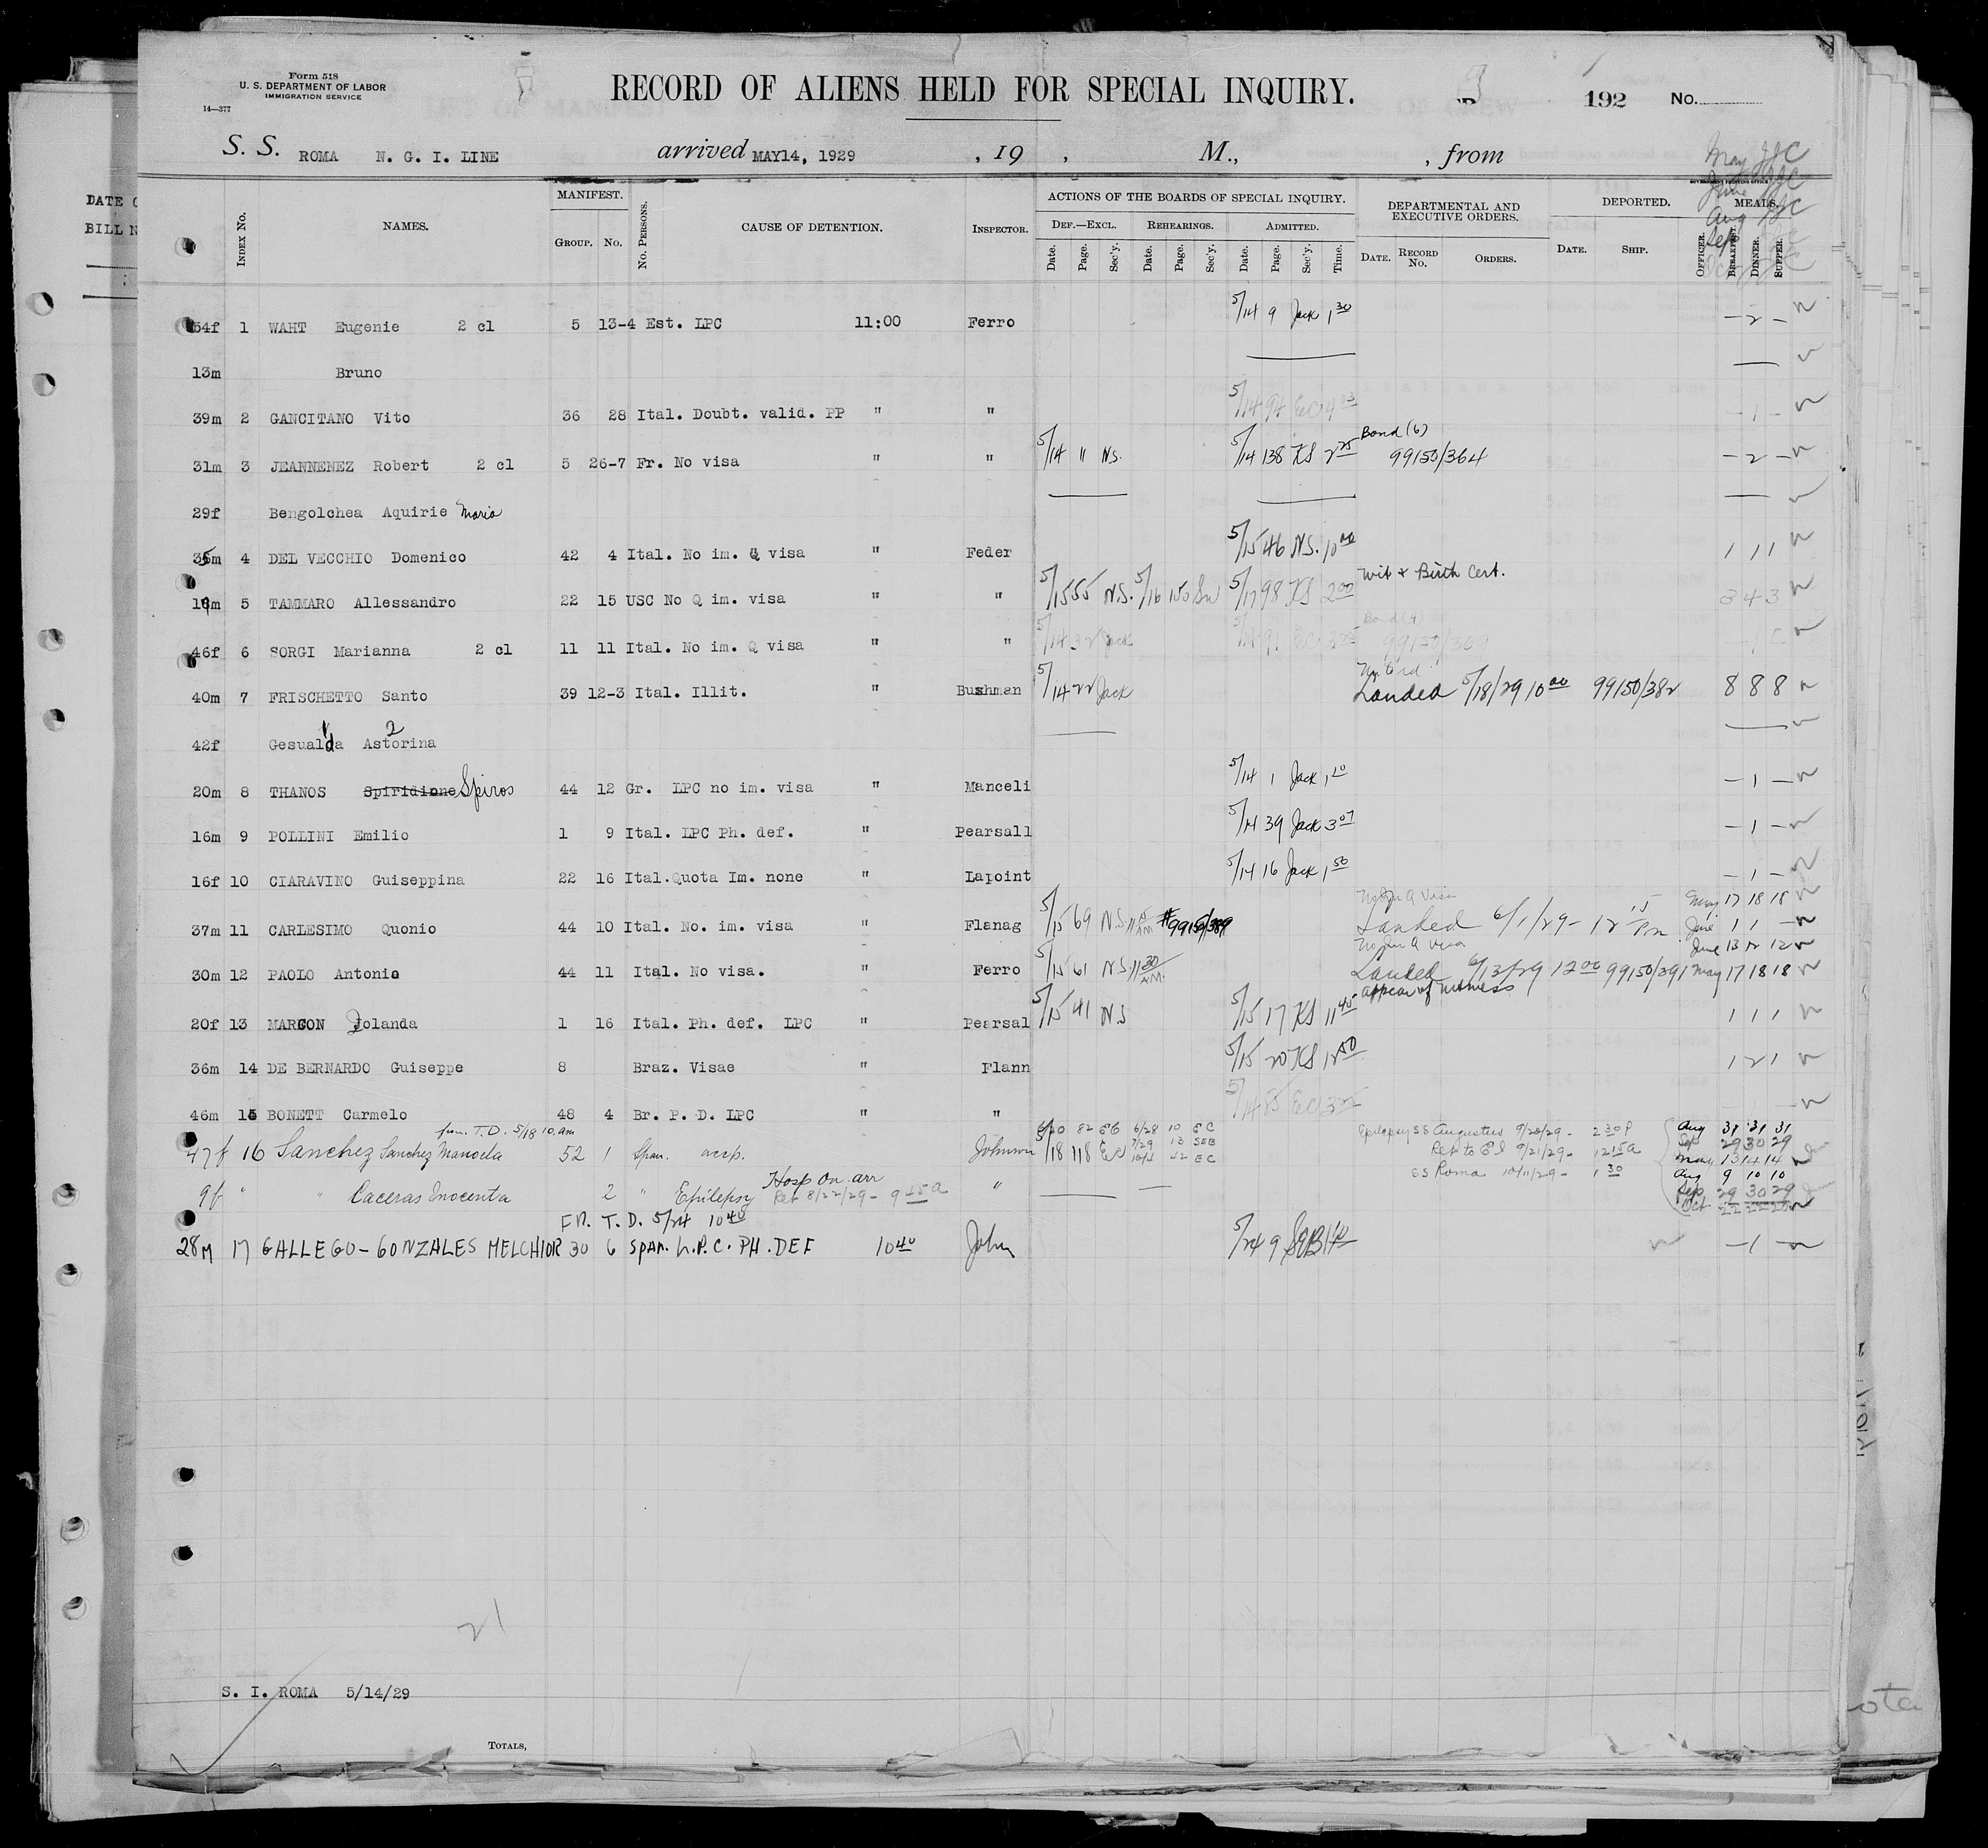 Form 518
U. S. DEPARTMENT OF LABOR
IMMIGRATION SERVICE
14—377
RECORD OF ALIENS HELD FOR SPECIAL INQUIRY.
192 No.
S. S. ROMA N. G. I. LINE arrived MAY14, 1929 , 19 , M., , from
May JJC
June
Aug
Sep
GOVERNMENT PRINTING OFFICE
DATE
BILL N
INDEX No. NAMES. MANIFEST. GROUP. No. No. PERSONS. CAUSE OF DETENTION. INSPECTOR.
ACTIONS OF THE BOARDS OF SPECIAL INQUIRY. DEF.—EXCL. Date. Page. Sec'y. REHEARINGS. Date. Page. Sec'y. ADMITTED. Date. Page. Sec'y. Time.
DEPARTMENTAL AND EXECUTIVE ORDERS. DATE. RECORD No. ORDERS. DEPORTED. DATE. SHIP. OFFICER. MEALS. BREAKFAST. DINNER. SUPPER.
54f 1 WAHT Eugenie 2 cl 5 13-4 Est. LPC 11:00 Ferro 5/14 9 Jack 1 30 — 2 —
13m Bruno
39m 2 GANCITANO Vito 36 28 Ital. Doubt. valid. PP " " 5/14 94 EC — 1 —
31m 3 JEANNENEZ Robert 2 cl 5 26-7 Fr. No visa " " 5/14 11 N.S. 5/14 138 KS 2 25 Bond (6) 99150/364 — 2 —
29f Bengolchea Aquirie Maria
35m 4 DEL VECCHIO Domenico 42 4 Ital. No im. Q visa " Feder 5/15 46 N.S. 10 00 1 1 1
5 TAMMARO Allessandro 22 15 USC No Q im. visa " " 5/15 55 N.S. 5/16 150 5/17 98 KS 2 00 Wit & Birth Cert. 3 4 3
46f 6 SORGI Marianna 2 cl 11 11 Ital. No im. Q visa " " 5/14 32 Jack 5/14 91 EC 99150/309
40m 7 FRISCHETTO Santo 39 12-3 Ital. Illit. " Bushman 5/14 22 Jack Landed 5/18/29 10 00 99150/382 8 8 8
42f Gesualda 1 Astorina 2
20m 8 THANOS Spiridione Spiros 44 12 Gr. LPC no im. visa " Manceli 5/14 1 Jack 1 10 — 1 —
16m 9 POLLINI Emilio 1 9 Ital. LPC Ph. def. " Pearsall 5/14 39 Jack 3 07 — 1 —
16f 10 CIARAVINO Guiseppina 22 16 Ital.Quota Im. none " Lapoint 5/14 16 Jack 1 50 — 1 —
37m 11 CARLESIMO Quonio 44 10 Ital. No. im. visa " Flanag 5/15 69 N.S. 11 15 AM #99150/389 No Im Q Visa Landed 6/1/29 - 12 15 Pm May 17 18 18 June 1 1 —
30m 12 PAOLO Antonio 44 11 Ital. No visa. " Ferro 5/15 61 N.S. 11 30 AM. No Im Q Visa Landed 6/13/29 12 00 99150/391 June 13 12 12 May 17 18 18
20f 13 MARCON Jolanda 1 16 Ital. Ph. def. LPC " Pearsal 5/15 41 N.S 5/15 17 KS 11 45 appear of witness 1 1 1
36m 14 DE BERNARDO Guiseppe 8 Braz. Visae " Flann 5/15 20 KS 12 50 1 2 1
46m 15 BONETT Carmelo 48 4 Br. P. D. LPC " " 5/14 85 EC
from T. D. 5/18 10 am
47f 16 Sanchez Sanchez Manoela 52 1 Span. accp. Johnson 5/18 118 EC 82 EC 6/28 10 EC 7/29 13 SEB 10/4 42 EC Epilepsy SS Augustus 9/20/29 - 2 30 P Ret to EI 9/21/29 - 12 15 a Aug 31 31 31 Sep 29 30 29 May 13 14 14
9f " " Caceras Inocenta 2 " Epilepsy Hosp on arr Ret 8/22/29 - 9 45 a " SS Roma 10/11/29 - 1 30 Aug 9 10 10 Sep 29 30 29 Oct 22 22 22
FR. T. D. 5/24 10 40
28M 17 GALLEGO-GONZALES MELCHIOR 30 6 SPAN. L.P.C. PH. DEF 10 40 John 5/24 9 SEB — 1 —
21
S. I. ROMA 5/14/29
TOTALS,